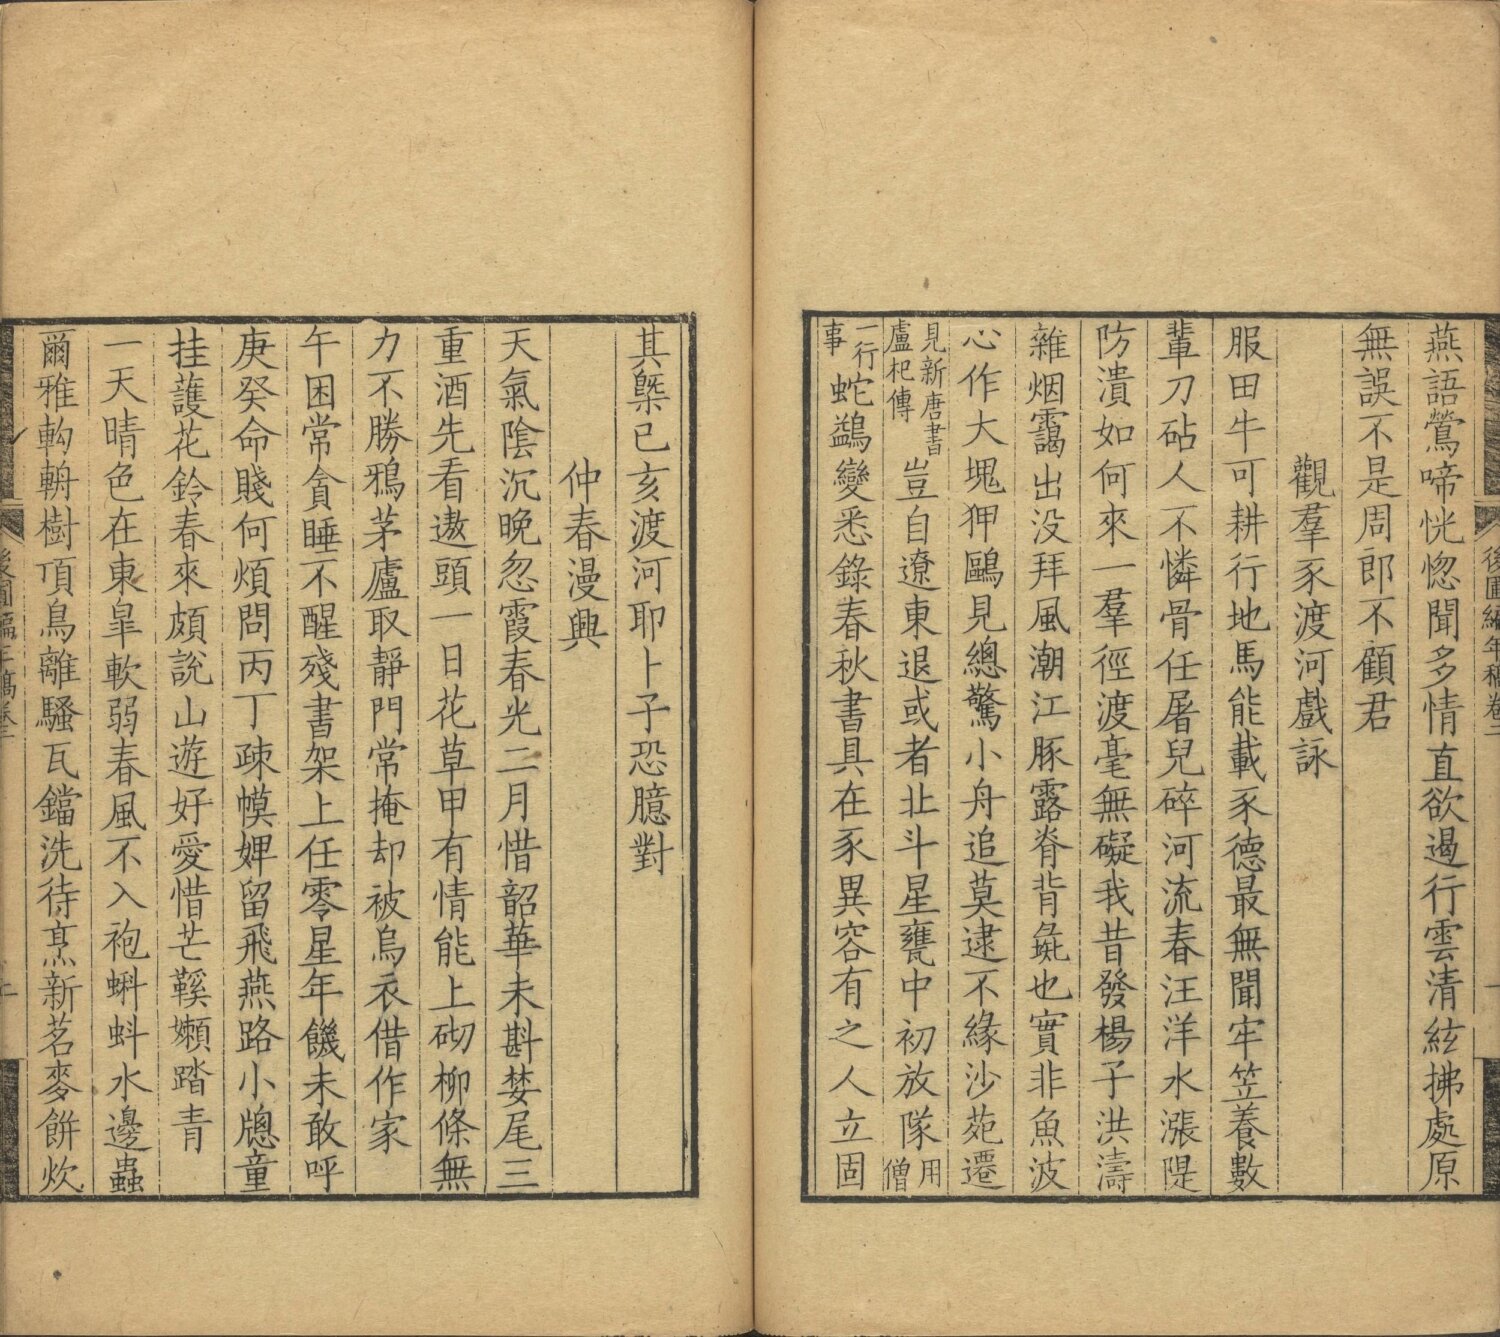 燕語鶯啼恍惚聞多情直欲遏行雲清絃拂處原
無誤不是周郎不顧君
觀羣豕渡河戲詠
服田牛可耕行地馬能載豕德最無聞牢笠養數
輩刀砧人不憐骨任屠兒碎河流春汪洋水漲隄
防潰如何來一羣徑渡毫無礙我昔發楊子洪濤
雜烟靄出没拜風潮江豚露脊背彘也實非魚波
心作大塊狎鷗見總驚小舟追莫逮不緣沙苑遷
見新唐書
盧杞傳
豈自遼東退或者北斗星甕中初放隊
用
僧
一行
事
蛇鷁變悉錄春秋書具在豕異容有之人立固
後圃編年稿卷二
其槩已亥渡河耶卜子恐臆對
仲春漫興
天氣陰沉晚忽霞春光二月惜韶華未斟婪尾三
重酒先看遨頭一日花草甲有情能上砌柳條無
力不勝鴉茅廬取靜門常掩却被烏衣借作家
午困常貪睡不醒殘書架上任零星年饑未敢呼
庚癸命賤何煩問丙丁疎幙婢留飛燕路小牕童
挂護花鈴春來頗說山遊好愛惜芒鞵嬾踏青
一天晴色在東皐軟弱春風不入袍蝌蚪水邊蟲
爾雅軥輈樹頂鳥離騷瓦鐺洗待烹新茗麥餅炊
後圃編年稿卷二